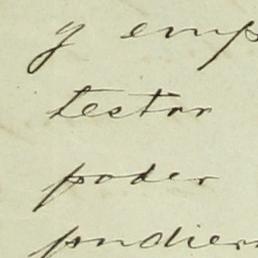 y emp
testar
poder
pudier